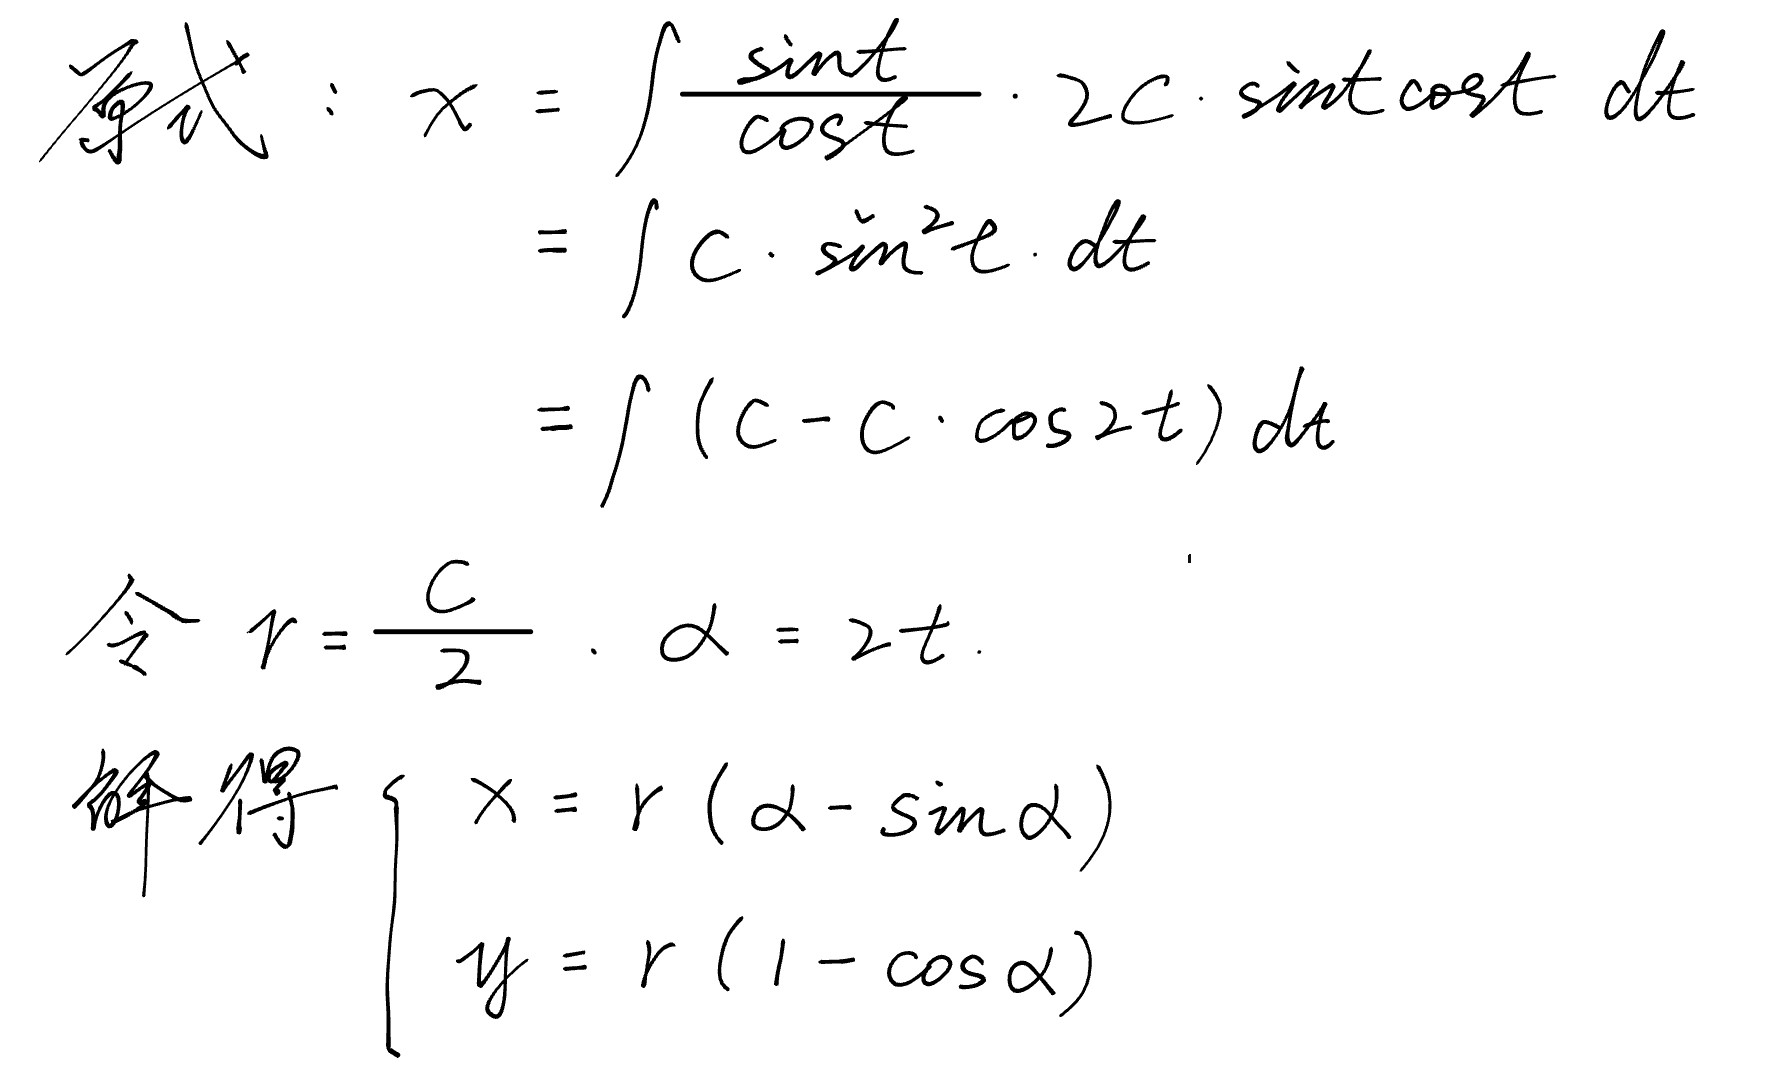 原式: x = ∫ sint/cost · 2C · sint cost dt
= ∫ C · sin²t · dt
= ∫ (C - C · cos2t) dt
令 r = C/2 . α = 2t.
解得 { x = r (α - sinα)
y = r (1 - cosα)